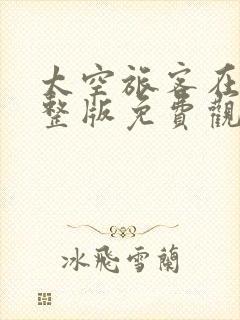 太空旅客在
整版免費觀
冰飛雪蘭